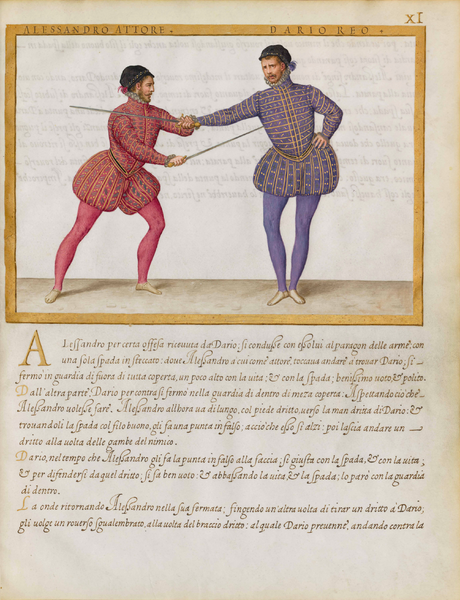 XI
ALESSANDRO ATTORE · DARIO REO ·
Alessandro per certa offesa ricevuta da Dario; si condusse con esso lui al paragon delle arme, con
una sola spada in steccato: dove Alessandro a cui come attore, toccava andare a trovar Dario; si
fermò in guardia di fuora di tutta coperta, un poco alto con la vita; & con la spada; benissimo voto, & polito.
Dall'altra parte, Dario per contra si fermò nella guardia di dentro di meza coperta: Aspettando ciò che
Alessandro volesse fare. Alessandro all'hora va di lungo, col piede dritto, verso la man dritta di Dario; &
trovandoli la spada col filo buono, gli fa una punta in falso; acciò che esso si alzi: poi lascia andare un
dritto alla volta delle gambe del nimico.
Dario, nel tempo che Alessandro gli fa la punta in falso alla faccia; si giusta con la spada, & con la vita;
& per difendersi da quel dritto; si fa ben voto; & abbassando la vita, & la spada; lo parò con la guardia
di dentro.
La onde ritornando Alessandro nella sua fermata; fingendo un'altra volta di tirar un dritto à Dario;
gli volge un roverso sgualembrato, alla volta del braccio dritto: al quale Dario prevenne, andando contra la